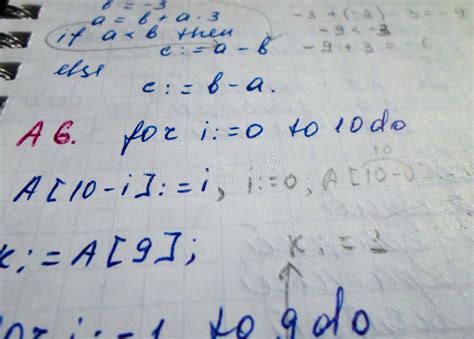 b = -3
a = b + a · 3   -3 + (-2) · 3 = -9
if a < b then   -9 < -3
c := a - b   -9 + 3 = -6
else
c := b - a.
A6. for i:=0 to 10 do
10
A[10-i]:=i, i:=0, A[10-0]
k:=A[9];   k:=1
for i:=1 to 9 do
dreamstime